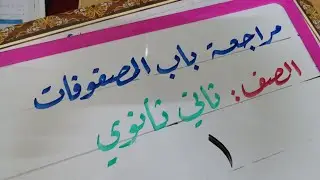 مراجعة باب المصفوفات
الصف: ثاني ثانوي
١